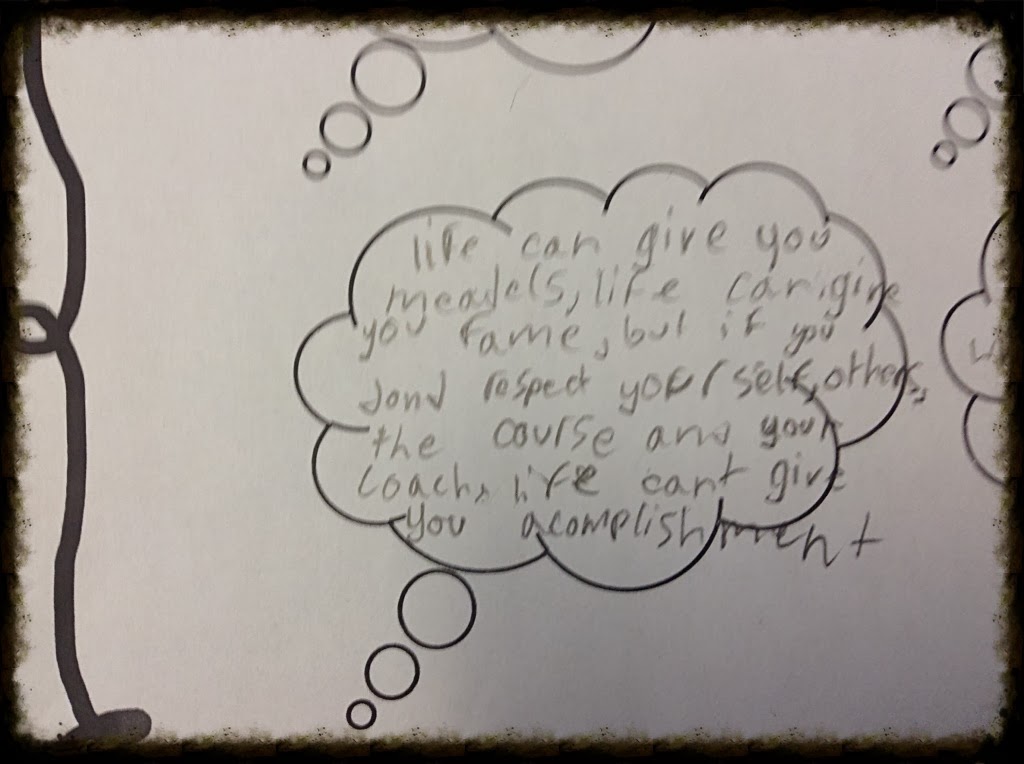 life can give you
meadels, life can give
you fame, but if you
dond respect yourself, others,
the course and your
coach, life cant give
you acomplishment